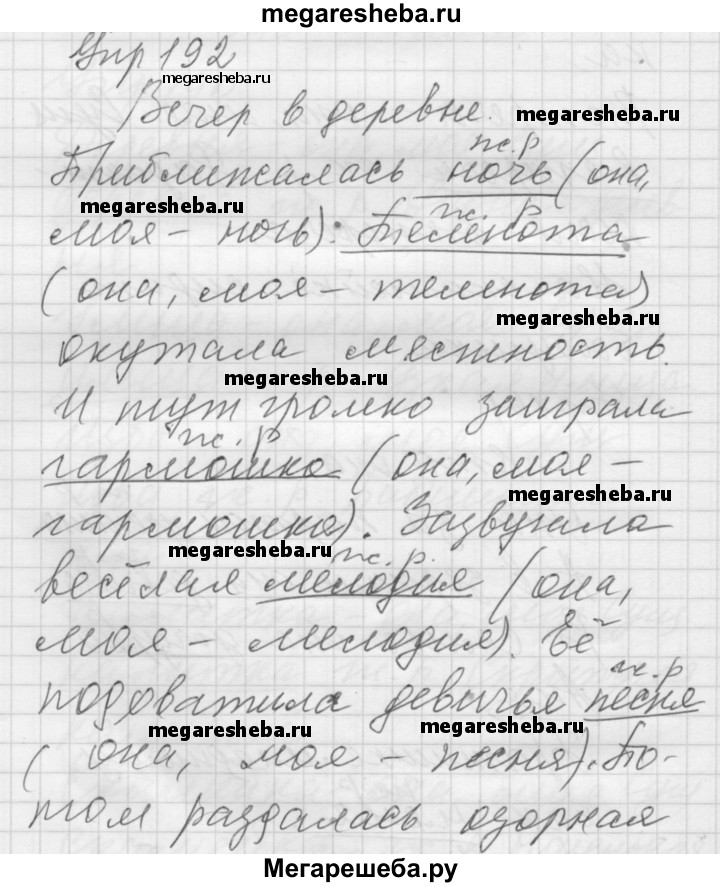 megaresheba.ru
Упр 192
megaresheba.ru
Вечер в деревне.
megaresheba.ru
ж.р
Приближалась ночь (она,
megaresheba.ru
ж. р
моя - ночь). Темнота
(она, моя - темнота)
megaresheba.ru
окутала местность.
megaresheba.ru
И тут громко заиграла
ж. р
гармошка (она, моя -
megaresheba.ru
гармошка). Зазвучала
megaresheba.ru
ж. р.
весёлая мелодия (она,
моя - мелодия). Её
ж. р
подхватила девичья песня
megaresheba.ru
megaresheba.ru
(она, моя - песня). По-
том раздалась озорная
Мегарешеба.ру